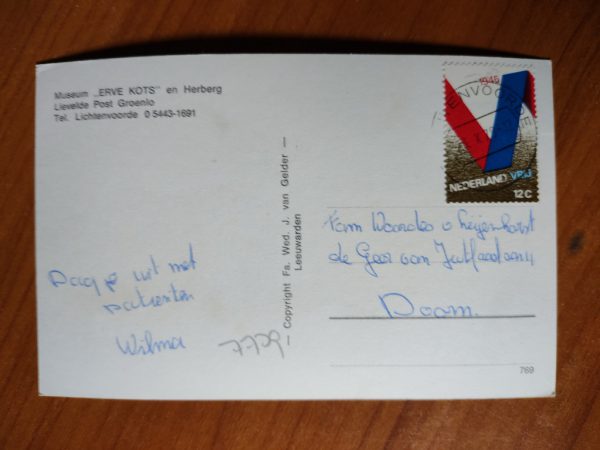 Museum „ERVE KOTS" en Herberg
Lievelde Post Groenlo
Tel. Lichtenvoorde 0 5443-1691
Dagje uit met
patienten
Wilma
7729
— Copyright Fa. Wed. J. van Gelder —
Leeuwarden
1945
NEDERLAND VRIJ
12c
Fam
de Geer van Jutfaaslaan 4
Doorn.
769